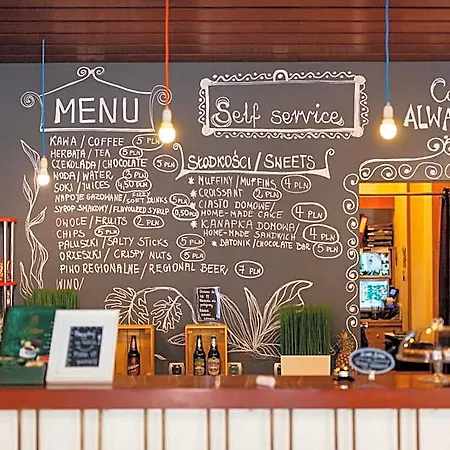 MENU
KAWA / COFFEE 5 PLN
HERBATA / TEA 5 PLN
CZEKOLADA / CHOCOLATE 5 PLN
WODA / WATER 3 PLN
SOKI / JUICES 4,50 PLN
NAPOJE GAZOWANE / FIZZY SOFT DRINKS 5 PLN
SYROP SMAKOWY / FLAVOURED SYRUP 0,50 PLN
OWOCE / FRUITS 2 PLN
CHIPS 5 PLN
PALUSZKI / SALTY STICKS 5 PLN
ORZESZKI / CRISPY NUTS 5 PLN
PIWO REGIONALNE / REGIONAL BEER 7 PLN
WINO
Self service
SŁODKOŚCI / SWEETS
* MUFFINY / MUFFINS 4 PLN
* CROISSANT 2 PLN
* CIASTO DOMOWE / HOME-MADE CAKE 4 PLN
* KANAPKA DOMOWA / HOME-MADE SANDWICH 4 PLN
* BATONIK / CHOCOLATE BAR 5 PLN
Co
ALWA